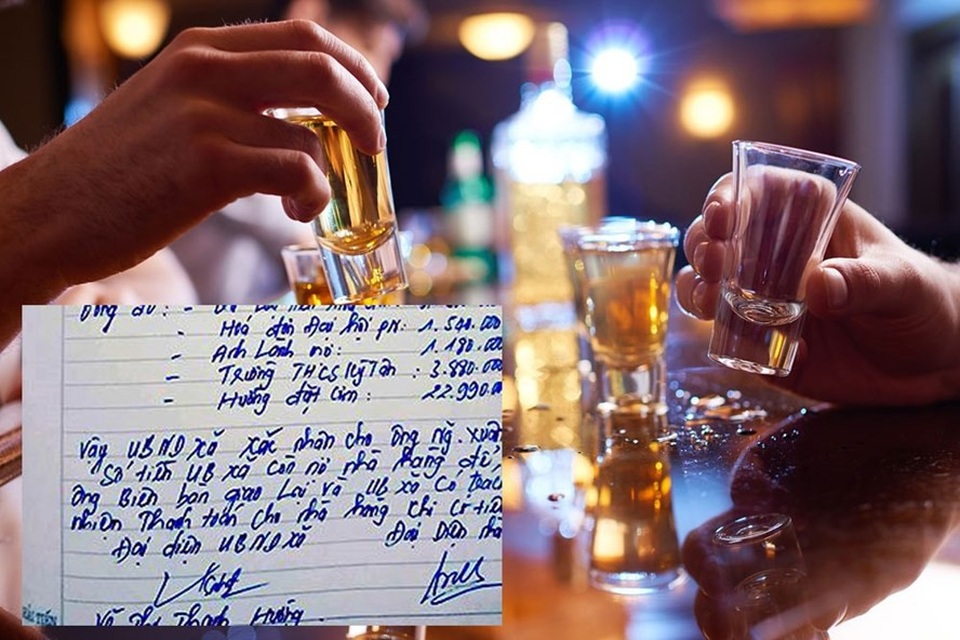 - Hoá đơn Đại hội PN: 1.540.000
- Anh Lành nợ: 1.180.000
- Trường THCS Kỳ Tân : 3.880.000
- Hướng đặt cơm : 22.990.
Vậy UBND xã xác nhận cho ông Ng. Xuân
Số tiền UB xã còn nợ nhà hàng để
ông Biên bàn giao lại và UB xã có trách
nhiệm Thanh toán cho nhà hàng
Đại diện UBND xã Đại Diện nhà
Võ Thị Thanh Hương